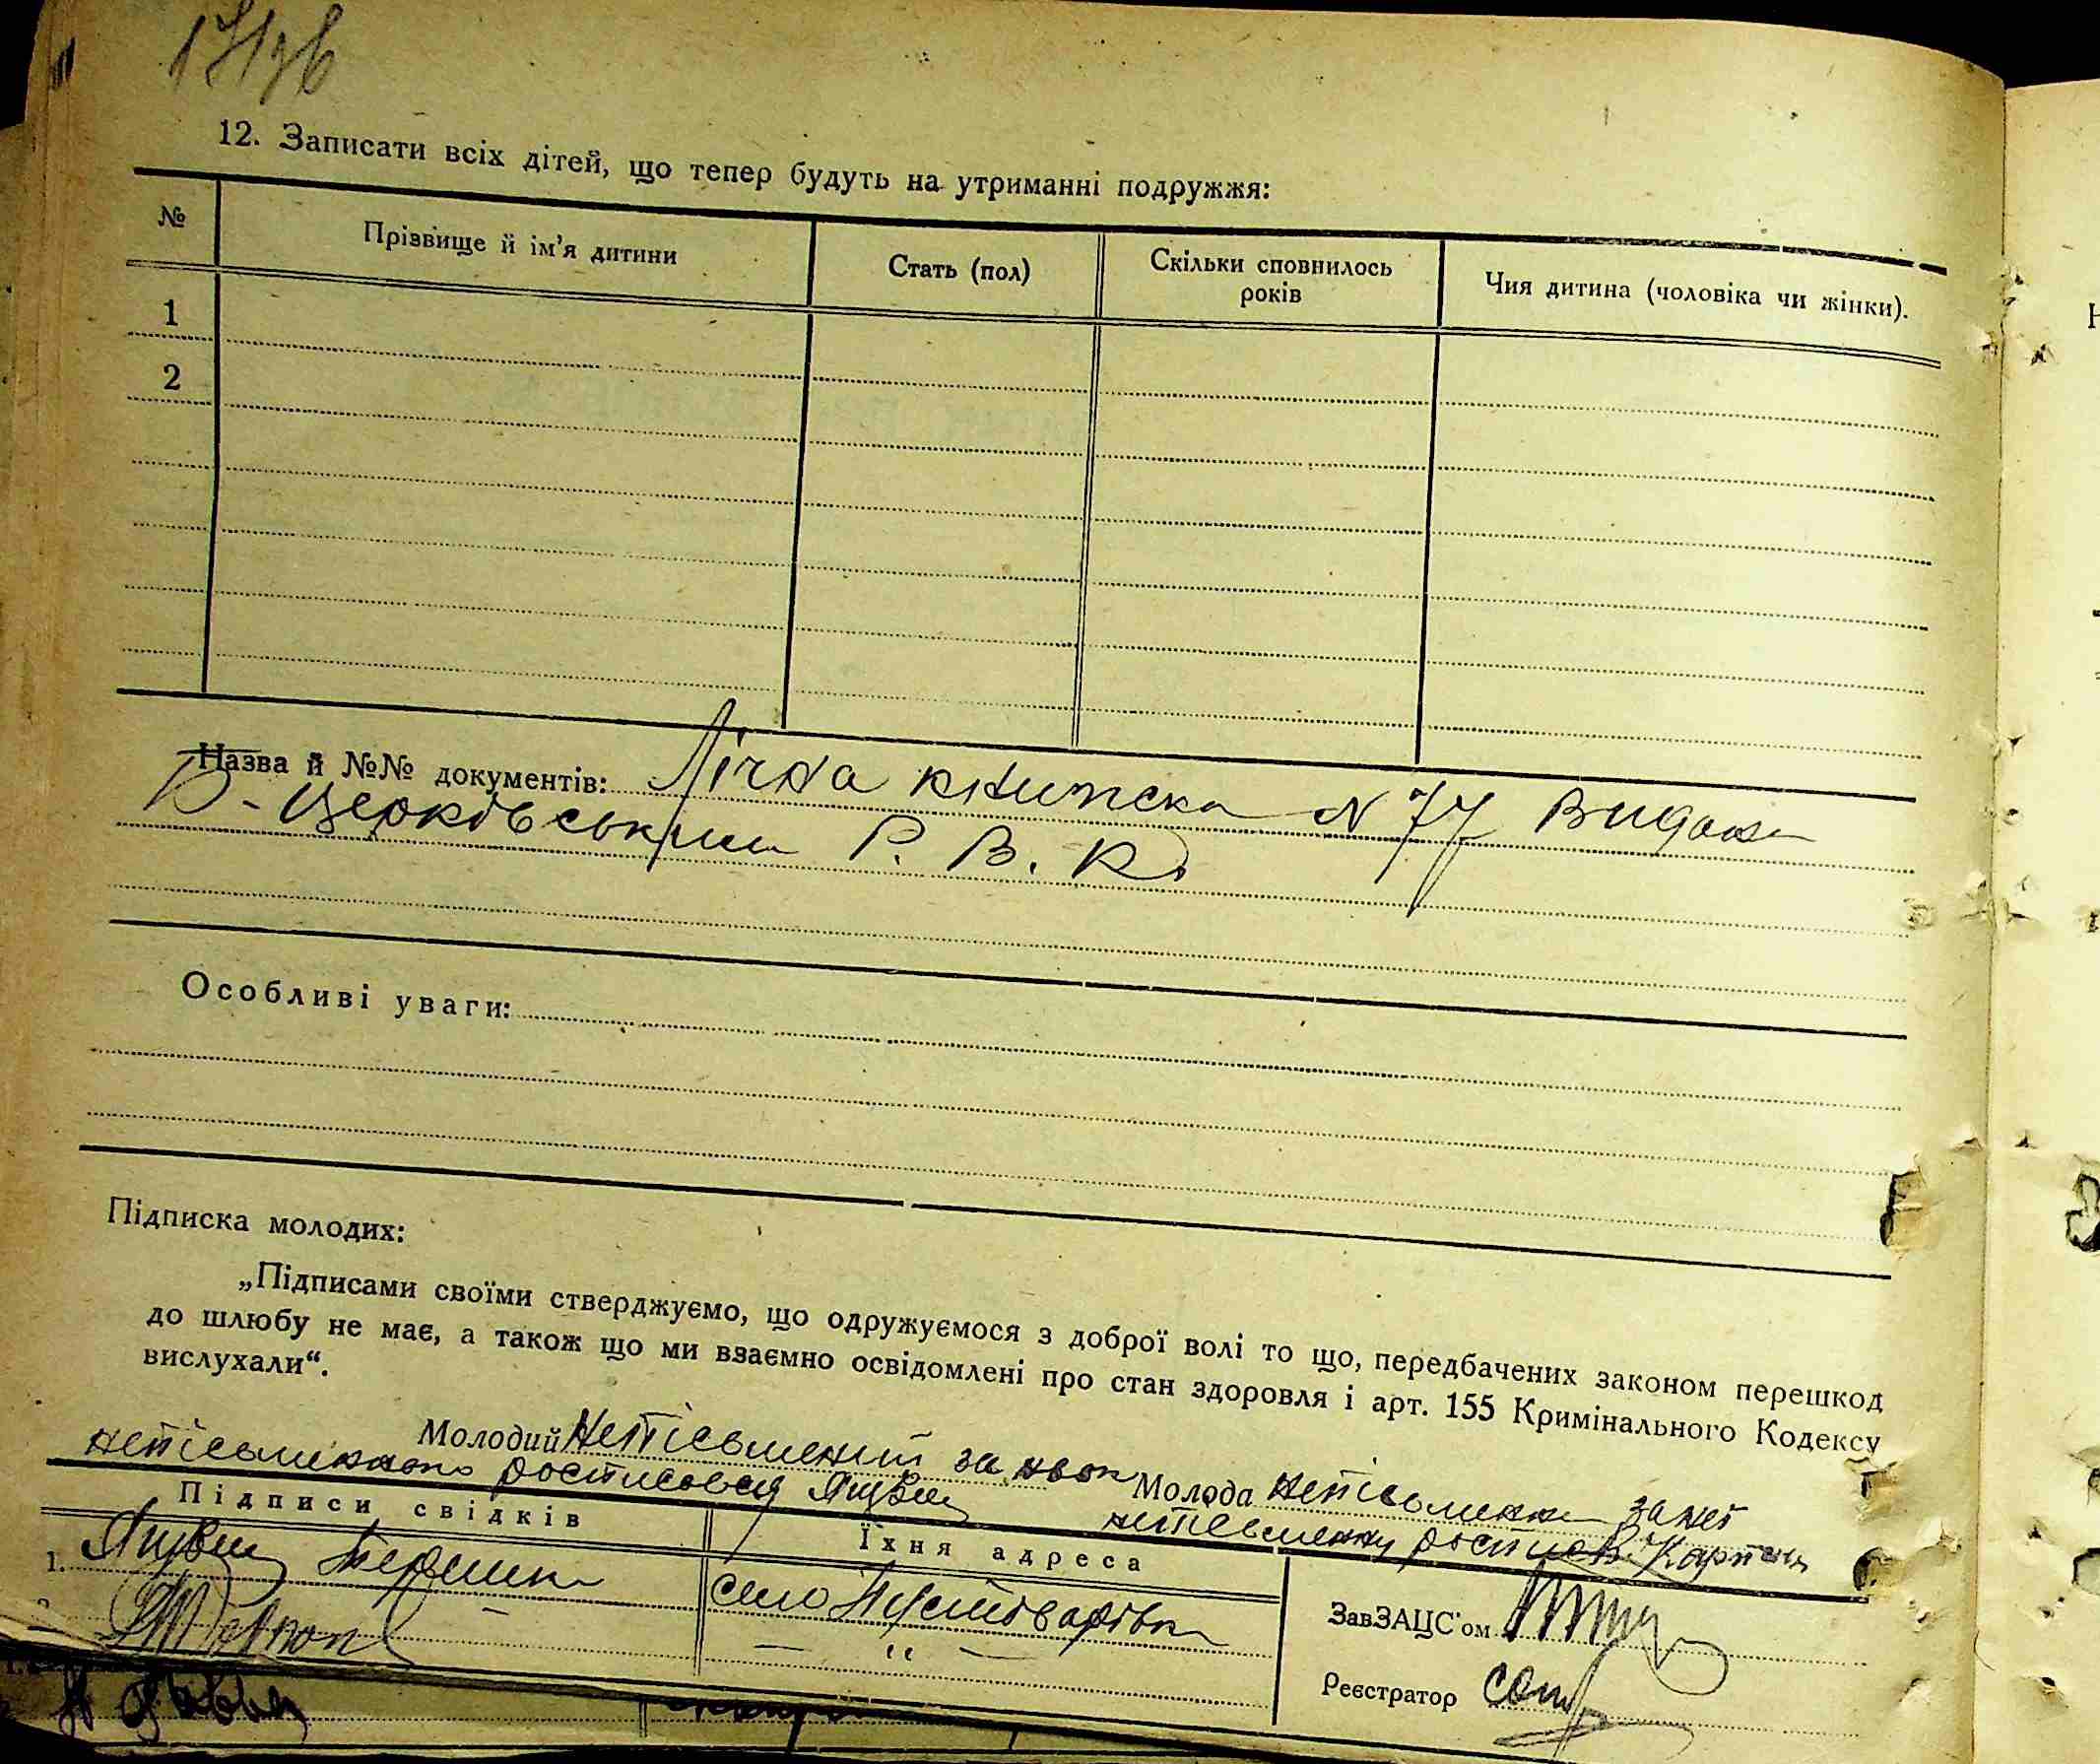 12. Записати всіх дітей, що тепер будуть на утриманні подружжя:
№ Прізвище й ім'я дитини Стать (пол) Скільки сповнилось років Чия дитина (чоловіка чи жінки).
1
2
Назва й №№ документів: Лічна книжска N 77 Видана
Б-Церківським Р. В. К.
Особливі уваги:
Підписка молодих:
„Підписами своїми стверджуємо, що одружуємося з доброї волі то що, передбачених законом перешкод
до шлюбу не має, а також що ми взаємно освідомлені про стан здоровля і арт. 155 Кримінального Кодексу
вислухали“.
Молодий Непісьменій за Молода непісьменна за неї
росписовся непісьменну
Підписи свідків Їхня адреса
1. село
— " —
ЗавЗАЦС'ом
Реєстратор